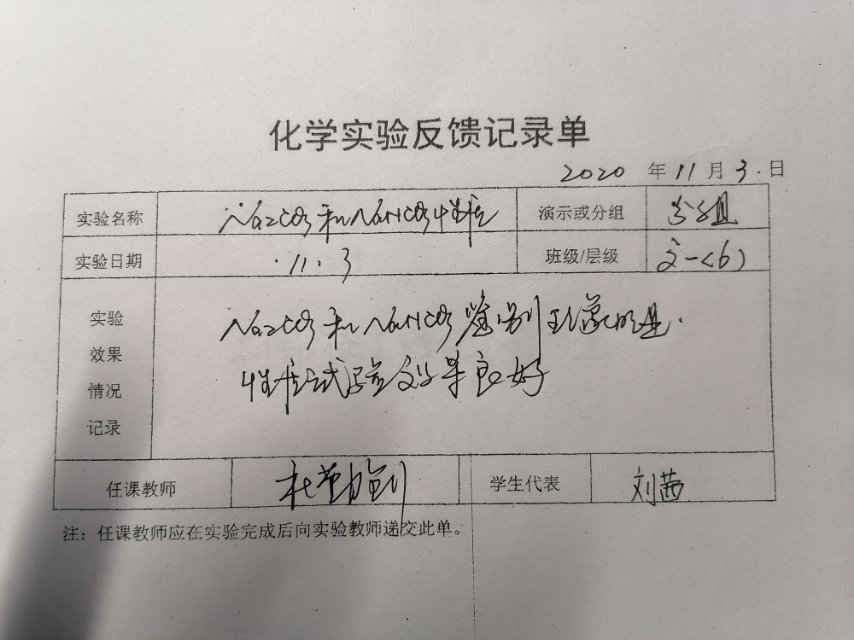 化学实验反馈记录单
2020 年 11 月 3 日
实验名称 Na2CO3和NaHCO3性质 演示或分组 分组
实验日期 11.3 班级/层级 高一(6)
实验效果情况记录 Na2CO3和NaHCO3鉴别现象明显.
性质试验效果良好
任课教师 杜 学生代表 刘茜
注：任课教师应在实验完成后向实验教师递交此单。